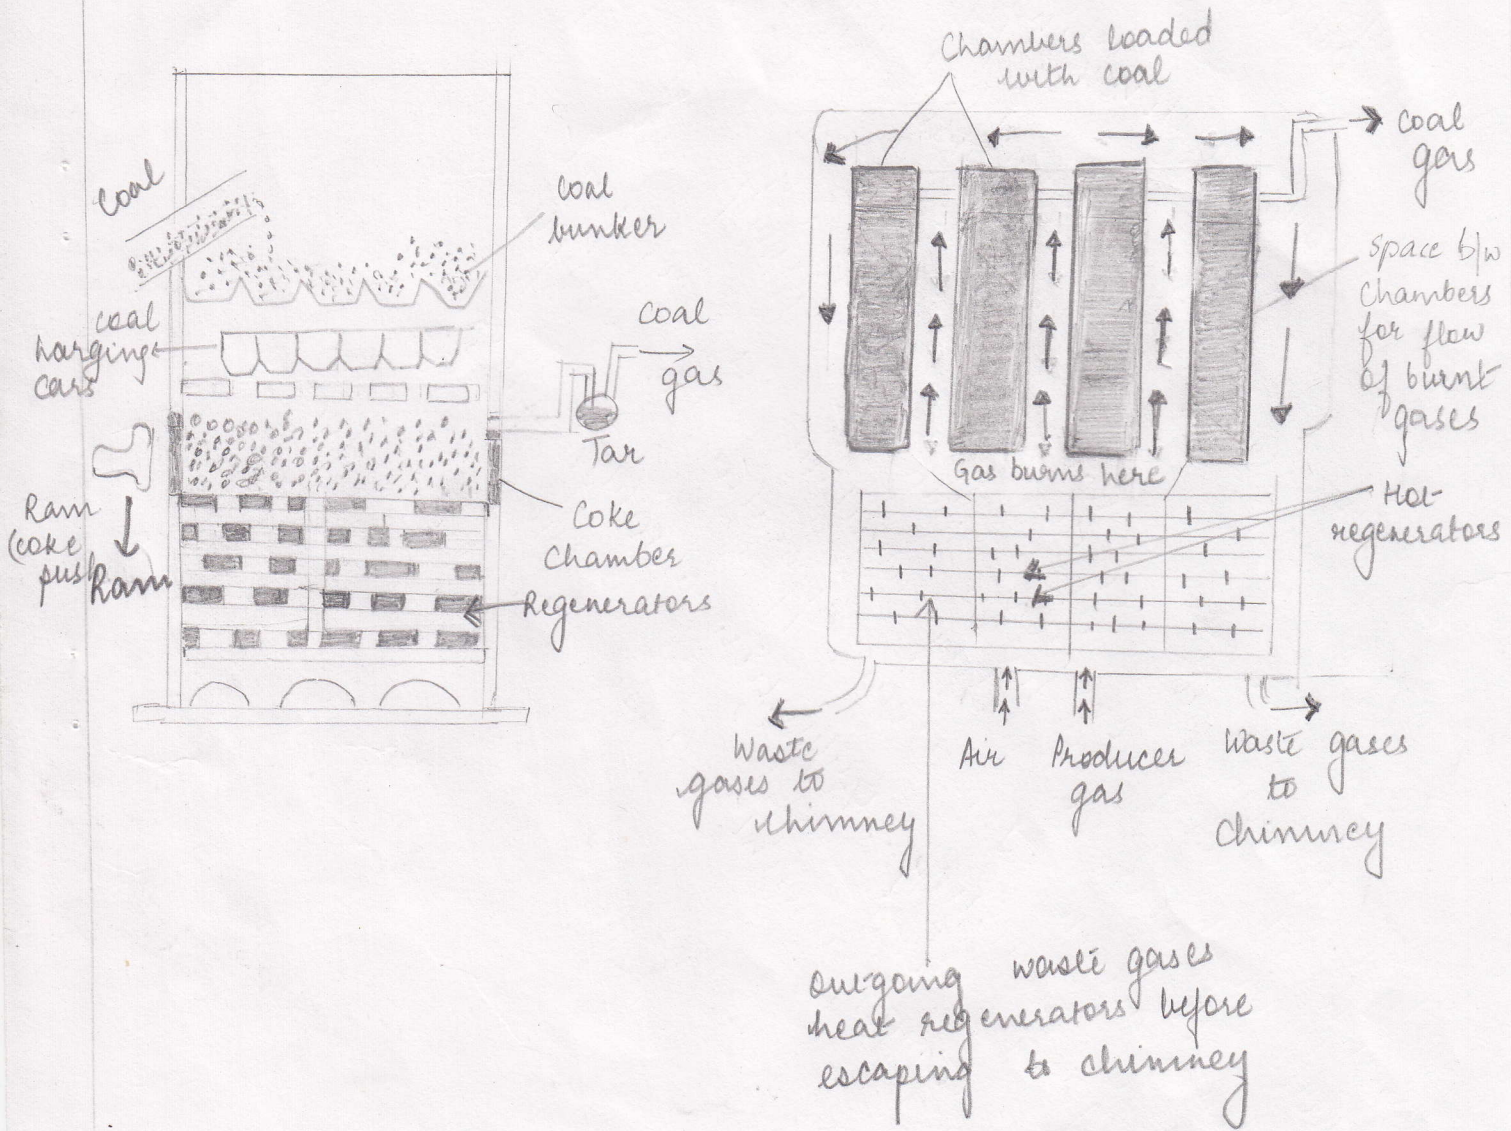 Coal
Coal
bunker
Coal
harging
cars
Coal
gas
Tar
Ram
(Coke
pus
Ram
Coke
Chamber
Regenerators
Chambers loaded
with coal
Coal
gas
Space b/w
Chambers
for flow
of burnt
gases
Gas burns here
Hot
regenerators
Waste
gases to
chimney
Air
Producer
gas
Waste gases
to
Chimney
Outgoing waste gases
heat regenerators before
escaping to chimney